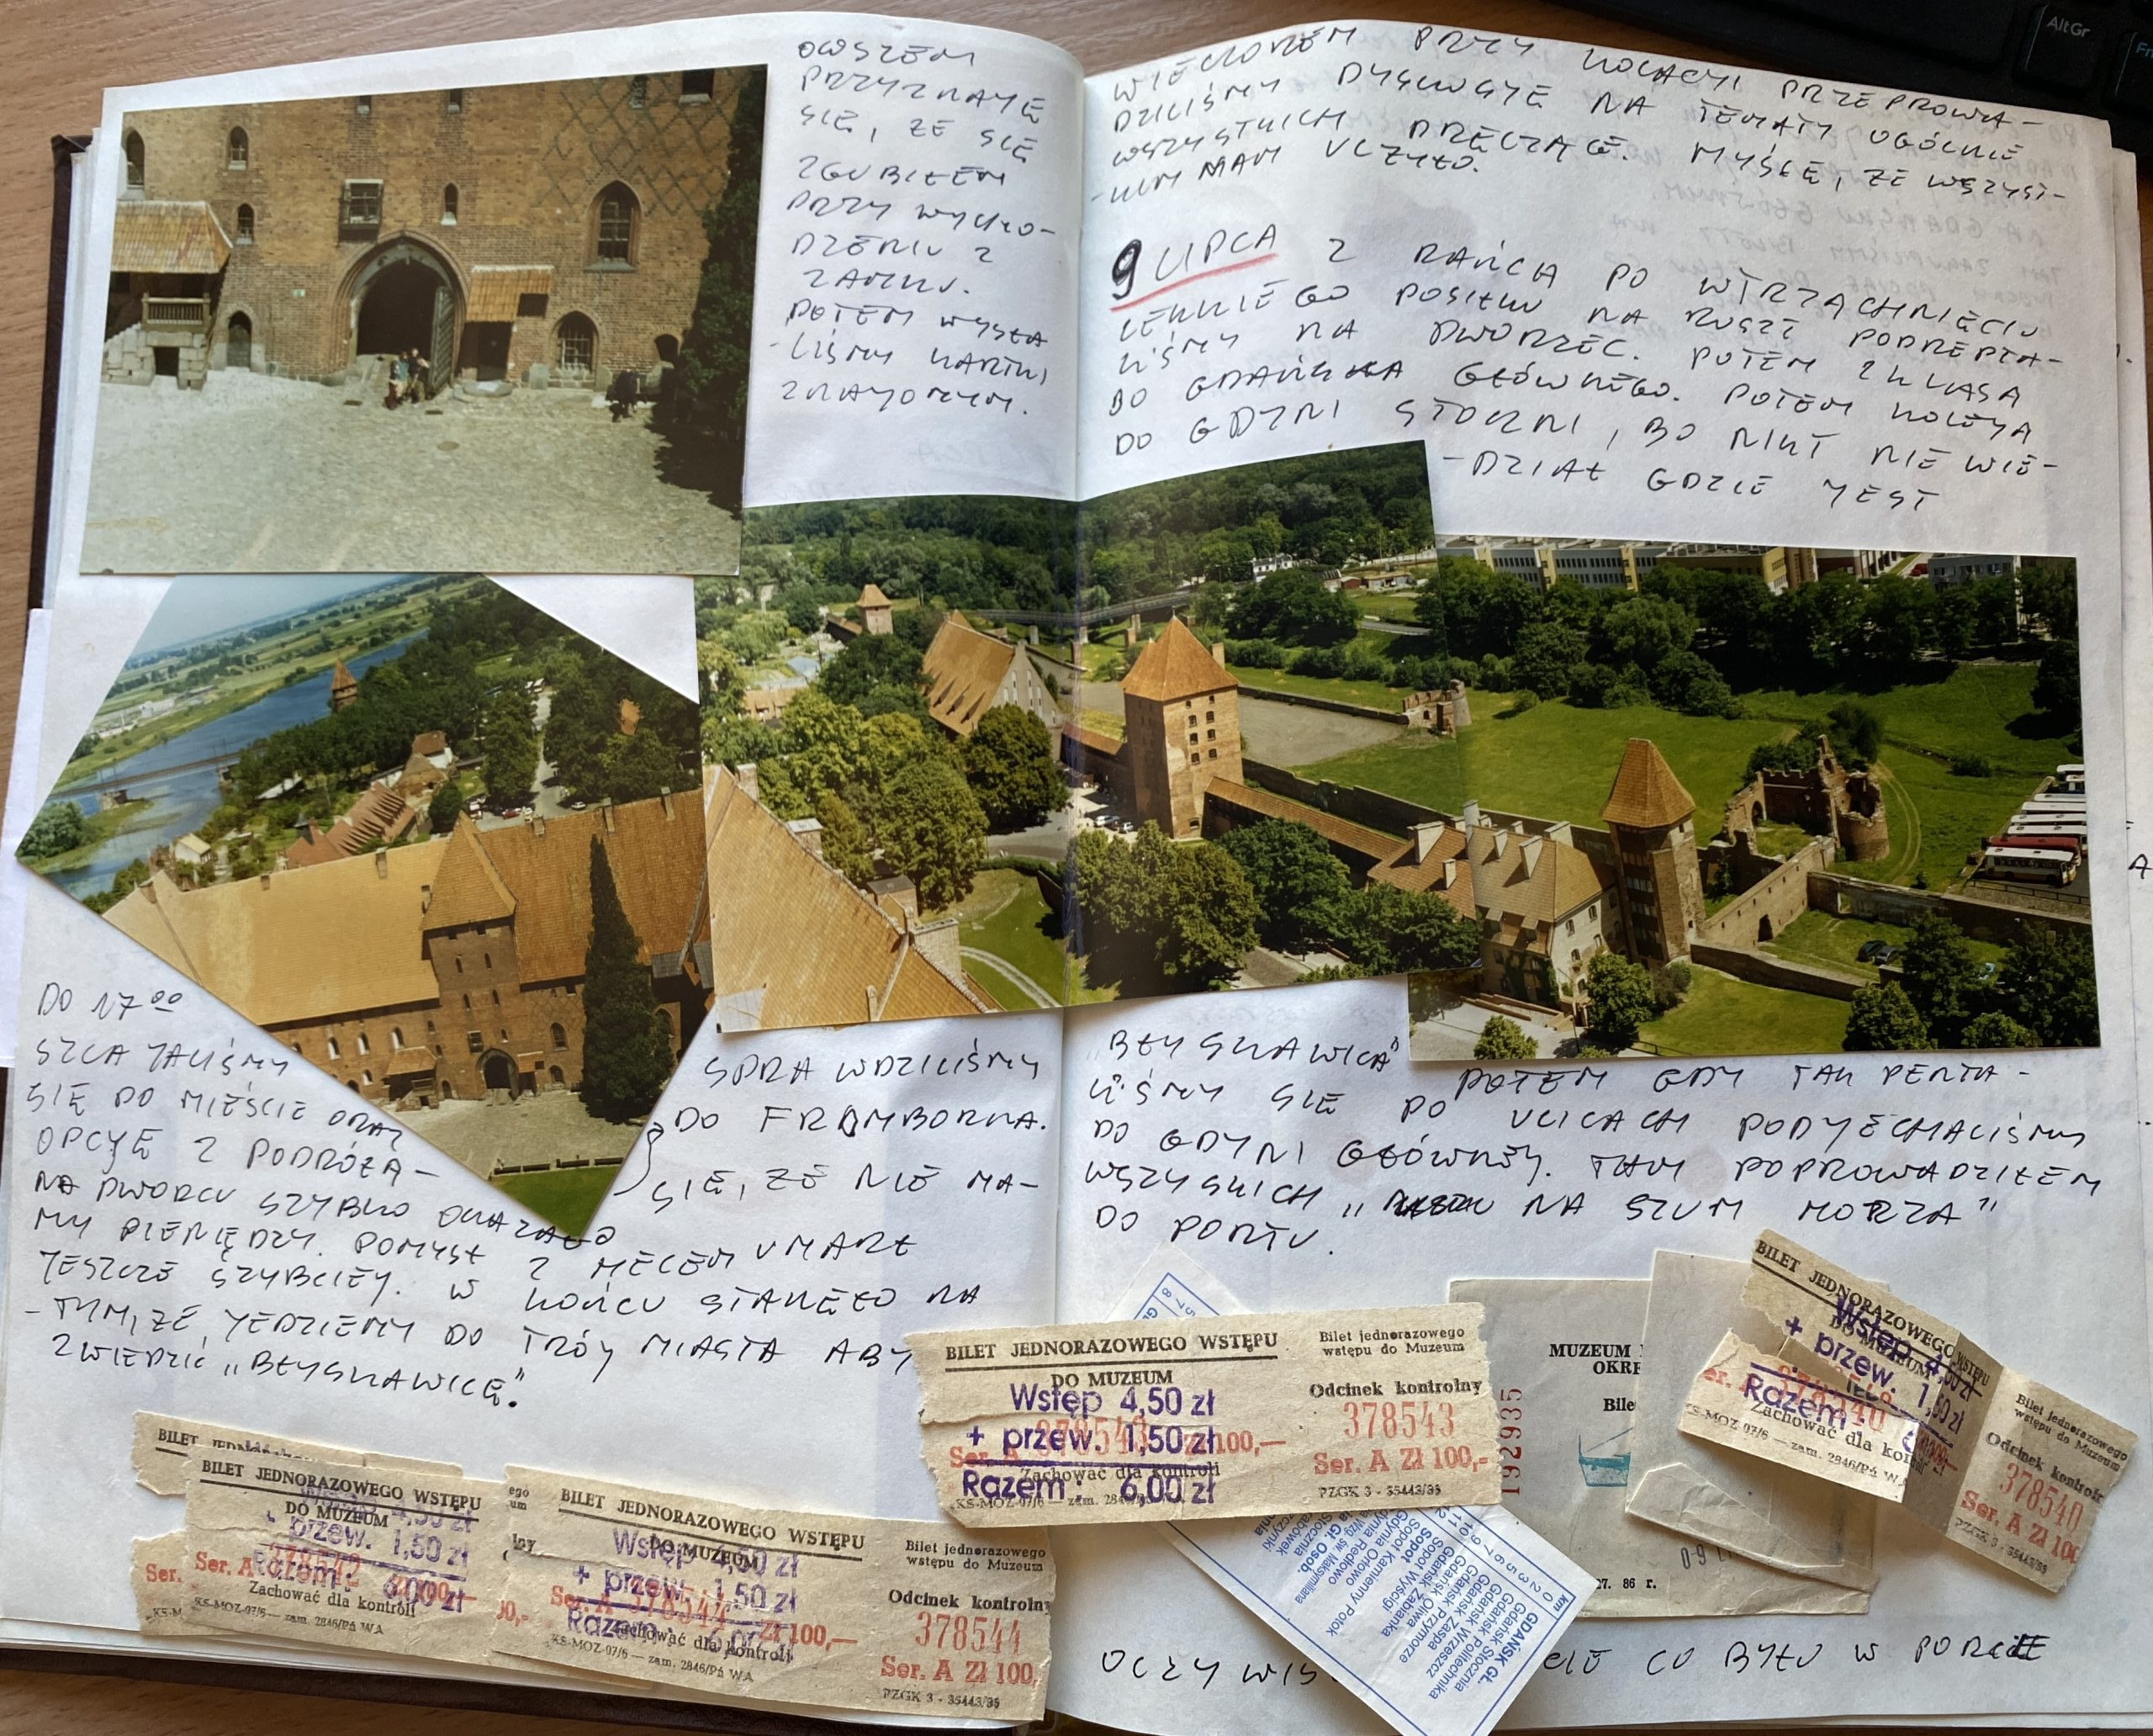 OWSZEM
PRZYZNAJĘ
SIĘ, ŻE SIĘ
ZGUBIŁEM
PRZY WYCHO-
DZENIU Z
ZAMKU.
POTEM WYSŁA
-LIŚMY KARTKI
ZNAJOMYM.
DO 17 00
SZLAJALIŚMY
SIĘ PO MIEŚCIE ORAZ
SPRAWDZILIŚMY
OPCJĘ Z PODRÓŻĄ-
DO FROMBORKA.
NA DWORCU SZYBKO OKAZAŁO
SIĘ, ŻE NIE MA-
MY PIENIĘDZY. POMYSŁ Z MECEM UMARŁ
JESZCZE SZYBCIEJ. W KOŃCU STANĘŁO NA
-TYM, ŻE JEDZIEMY DO TRÓJMIASTA ABY
ZWIEDZIĆ „BŁYSKAWICĘ".
BILET JEDNORAZOWEGO WSTĘPU
DO MUZEUM
Wstęp 4,50 zł
+ przew. 1,50 zł
Razem: 6,00 zł
Ser. A 378542
Zachować dla kontroli
KS-MOZ-07/6 — zam. 2846/Pá WA
BILET JEDNORAZOWEGO WSTĘPU
DO MUZEUM
Wstęp 4,50 zł
+ przew. 1,50 zł
Ser. A 378544 Zł 100,—
Razem:
Zachować dla kontroli
KS-MOZ-07/6 — zam. 2846/Pá WA
Bilet jednorazowego
wstępu do Muzeum
Odcinek kontrolny
378544
Ser. A Zł 100,
PZGK 3 - 35443/86
WIECZOREM PRZY KOLACJI PRZEPROWA-
DZILIŚMY DYSKUSJE NA TEMATY OGÓLNIE
WSZYSTKICH DRĘCZĄCE. MYŚLĘ, ŻE WSZYST-
-KIM NAM ULŻYŁO.
9 LIPCA Z RAŃCA PO WTRZĄCHNIĘCIU
LEKKIEGO POSIŁKU NA RUSZT PODREPTA-
LIŚMY NA DWORZEC. POTEM 2 KLASA
DO GDAŃSKA GŁÓWNEGO. POTEM KOLEJĄ
DO GDYNI STOCZNI, BO NIKT NIE WIE-
-DZIAŁ GDZIE JEST
„BŁYSKAWICA" POTEM GDY TAK PĘTA-
LIŚMY SIĘ PO ULICACH PODJECHALIŚMY
DO GDYNI GŁÓWNEJ. TAM POPROWADZIŁEM
WSZYSKICH „NA SZUM MORZA"
DO PORTU.
BILET JEDNORAZOWEGO WSTĘPU
DO MUZEUM
Wstęp 4,50 zł
+ przew. 1,50 zł
Ser. A 378543 Zł 100,—
Zachować dla kontroli
Razem: 6,00 zł
KS-MOZ-07/6 — zam.
Bilet jednorazowego
wstępu do Muzeum
Odcinek kontrolny
378543
Ser. A Zł 100,-
PZGK 3 - 35443/86
192935
MUZEUM
OKRĘ
Bile
27. 86 r.
BILET JEDNORAZOWEGO WSTĘPU
DO MUZEUM
Wstęp 4,50 zł
+ przew. 1,50 zł
Razem:
Zachować dla
KS-MOZ-07/6 — zam. 2846/Pá WA
Bilet jednorazowego
wstępu do Muzeum
Odcinek kontrolny
378540
Ser. A Zł 100
PZGK 3 - 35443/86
km
GDAŃSK GŁ.
Gdańsk Stocznia
Gdańsk Politechnika
Gdańsk Wrzeszcz
Gdańsk Zaspa
Gdańsk Przymorze
Gdańsk Oliwa
Gdańsk Żabianka
Sopot Wyścigi
Sopot
Sopot Kamienny Potok
Gdynia Orłowo
Gdynia Redłowo
OCZYWIS
CO BYŁO W PORCIE
AltGr